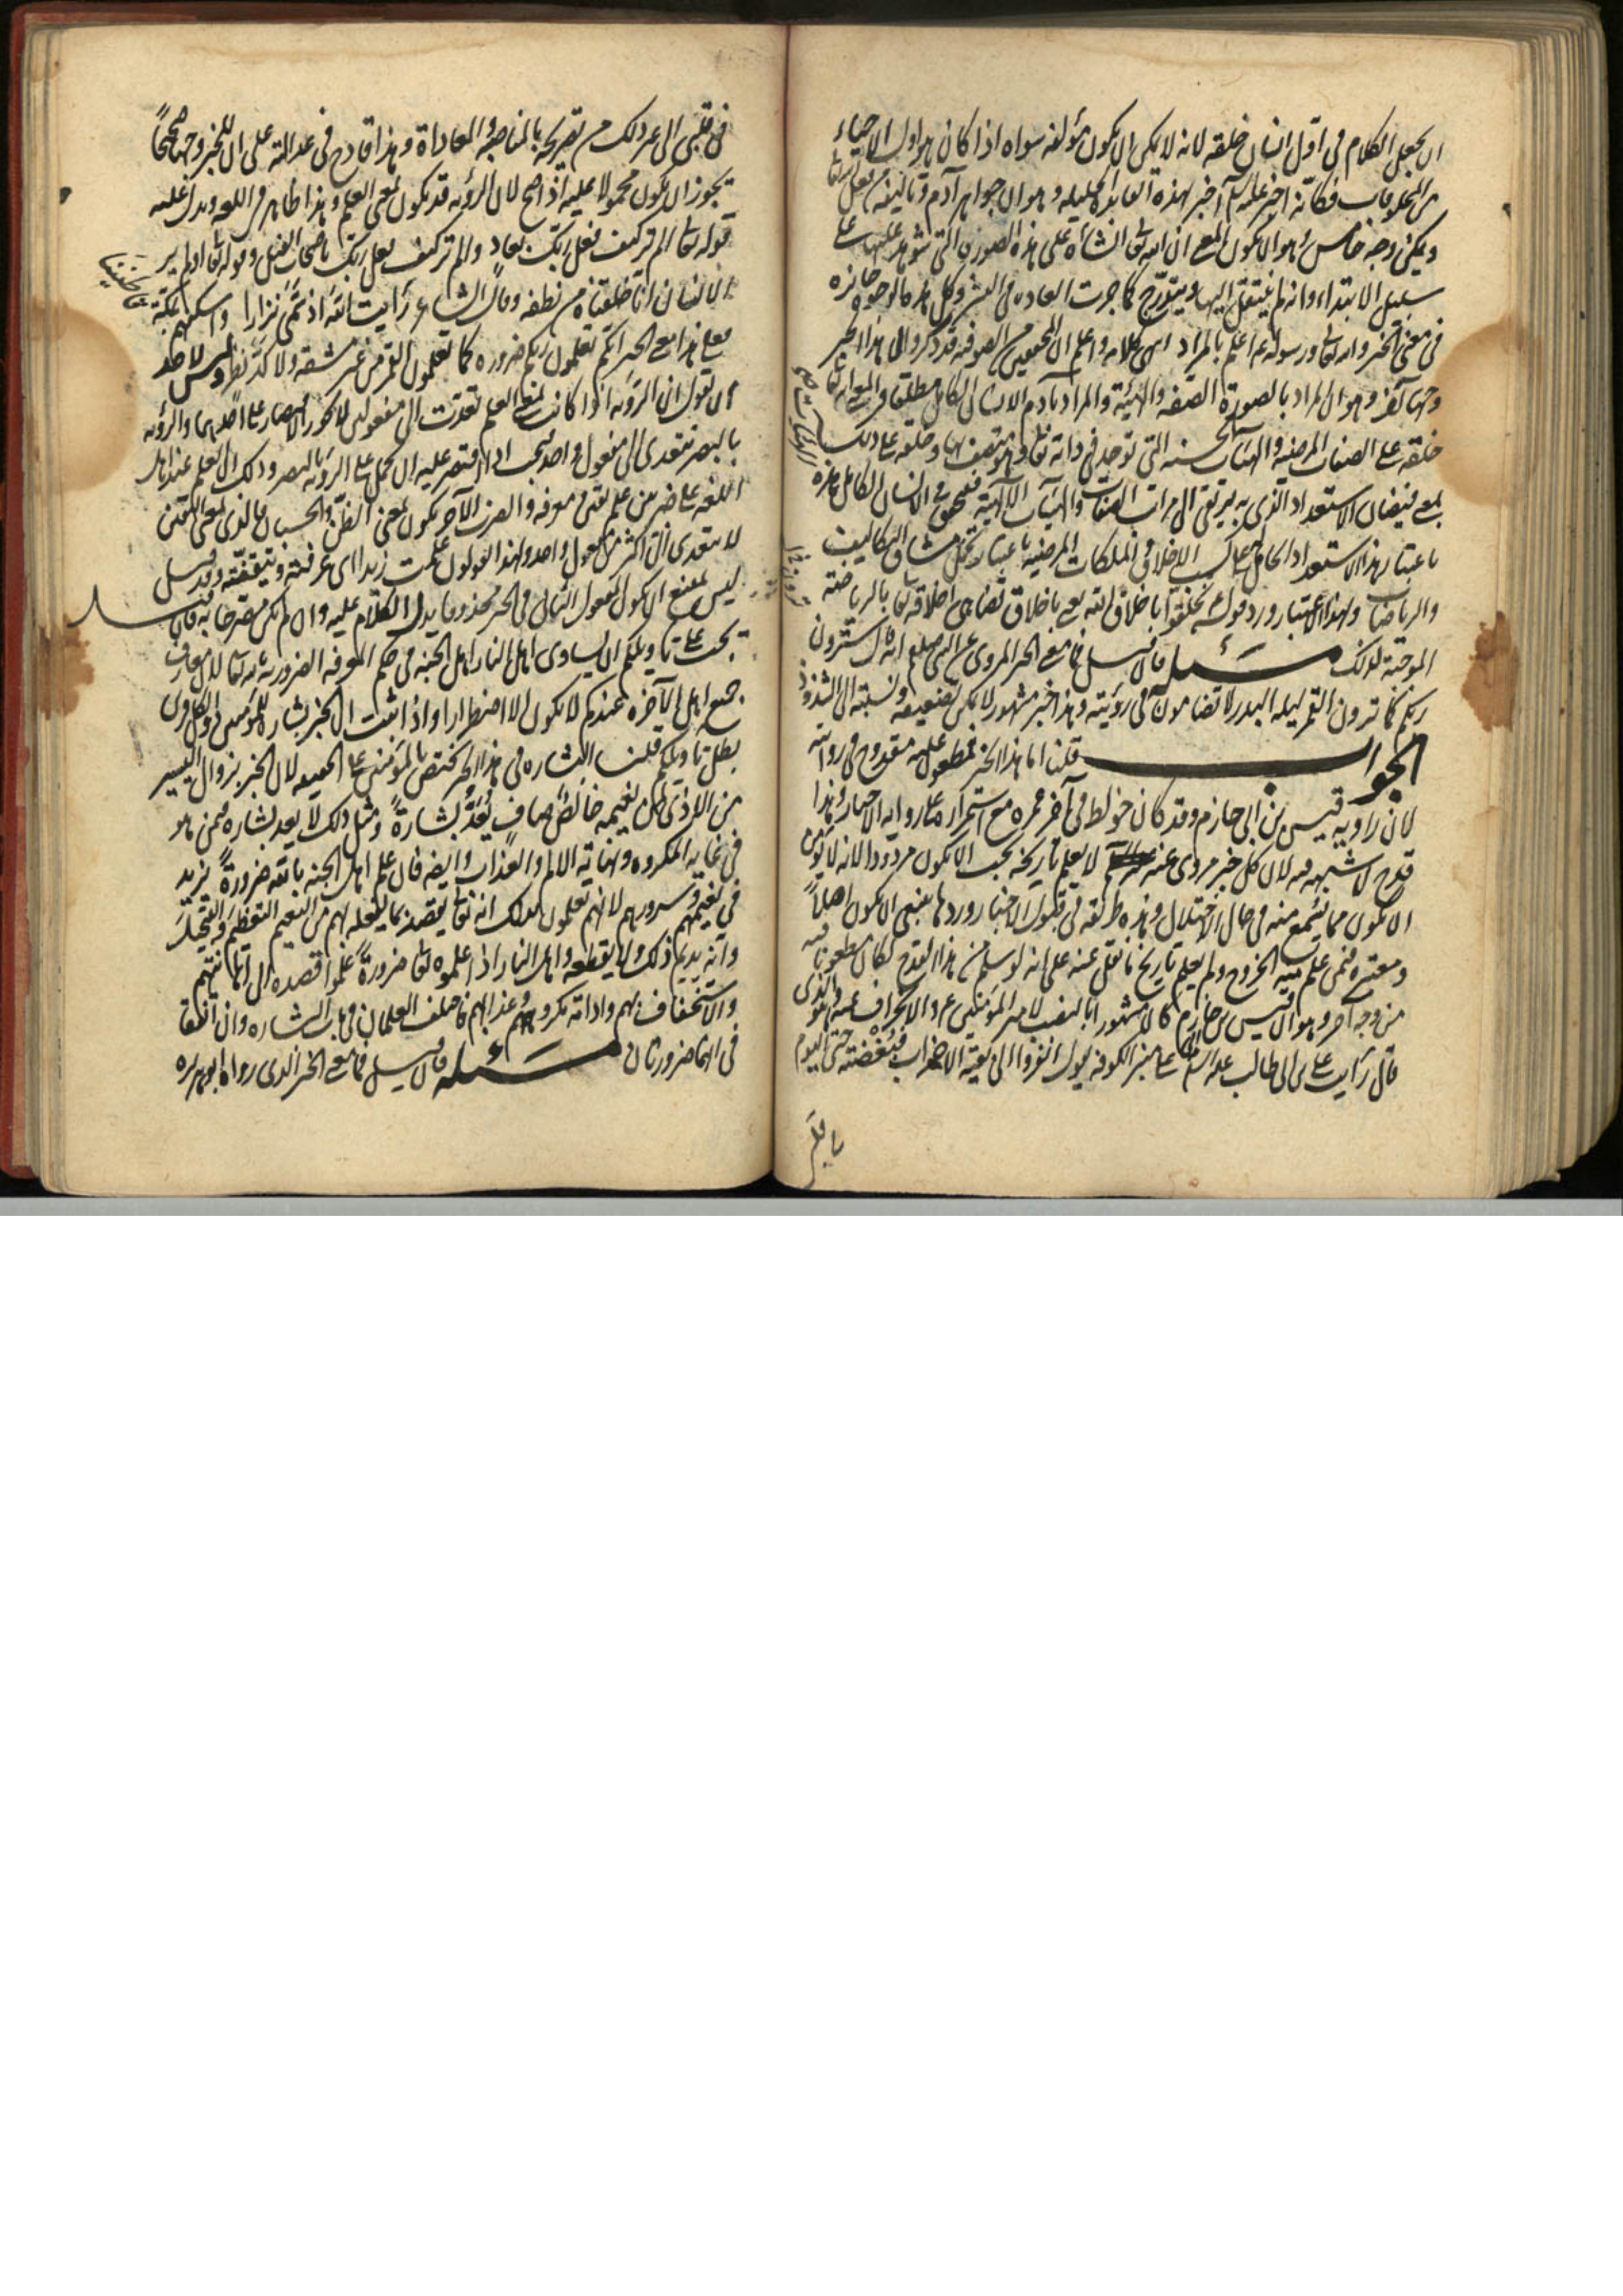 ان يجعل الكلام في اوّل انسان خلقه لانه لا يمكن ان يكون مؤلفه سواه اذا كان هو اول الاحياء
من المخلوقات فكانّه اخبر عليه السلم آخر بهذه الفايدة الجليله وهو ان جواهر آدم وتاليفه من فعل الله تعا
ويمكن وجه خامس وهو ان يكون المعنى ان الله تعالى انشأه على هذه الصورة التي شوهد عليها على
سبيل الابتداء وانه لم ينتقل اليها ويتدرّج كما جرت العاده في البشر وكل هذه الوجوه جائزه
في معنى الخبر والله تعالى ورسوله اعلم بالمراد انتهى كلامه واعلم ان المحققين من الصوفيه قد ذكروا لهذا الخبر
وجها آخر وهو ان المراد بالصورة الصفه والهيئة والمراد بآدم الانسان الكامل مطلقا والمعنى ان الله تعا
خلقه على الصفات المرضيه والهيئات الحسنه التي توجد في ذاته تعا وهو متصف بها وخلقه على ذلك
بمعنى فيضان الاستعداد الذي به يرتقى الى مراتب الصفات والهيئات الالهية فيتحقق في الانسان الكامل
باعتبار هذا الاستعداد الحامل على كسب الاخلاق والملكات المرضيه باعتبار تحمل مشاق التكاليف
والرياضات ولهذا الاعتبار ورد قوله تخلقوا باخلاق الله يعني باخلاق تضاهي اخلاقه تعا بالرياضة
الموجبة لذلك مسئله فان قيل فما معنى الخبر المروى عن النبي صلعم انه قال سترون
ربكم كما ترون القمر ليله البدر لا تضامون في رؤيته وهذا خبر مشهور لا يمكن تضعيفه ونسبته الى الشذوذ
الجواب قلنا اما هذا الخبر فمطعون عليه مقدوح في روايته
لان راويه قيس بن ابي حازم وقد كان خولط في آخر عمره مع استمراره على رواية الاخبار وهذا
قدح لا شبهه فيه لان كل خبر مروى عنه لا يعلم تاريخه يجب ان يكون مردودا لانه لا يؤمن
ان يكون مما سُمع منه في حال الاختلال وهذه طريقه في قبول الاخبار وردها ينبغي ان يكون اصلاً
ومعتبره فيمن علم منه الخروج ولم يعلم تاريخ ما نقل عنه على انه لو سلم من هذا القدح لكان مطعونا فيه
من وجه آخر وهو ان قيس بن حازم كان مشهورا بالنصب لامير المؤمنين ع والانحراف عنه وهو الذي
قال رأيت علي بن ابي طالب عليه السلم على منبر الكوفه يقول انفروا الى بقية الاحزاب فبُغضته حتى اليوم
في قلبي
في قلبي الى غير ذلك من تصريحه بالمناصبه والمعاداة وهذا قادح في عدالته على ان للخبر وجها صحيحاً
يجوز ان يكون محمولا عليه اذا صح لان الرؤيه قد تكون بمعنى العلم وهذا ظاهر في اللغه ويدل عليه
قوله تعالى الم تر كيف فعل ربك بعاد والم تر كيف فعل ربك باصحاب الفيل وقوله تعا اولم ير
الانسان انا خلقناه من نطفه وقال الشاعر رأيت الله اذ سمّى نزارا واسكنهم بمكّة قاطنينا
فعلى هذا معنى الخبر انكم تعلمون ربكم ضروره كما تعلمون القمر من غير مشقه ولا كدّ نظر وليس لاحد
ان يقول ان الرؤيه اذا كانت بمعنى العلم تعدّت الى مفعولين لا يجوز الاقتصار على احدهما والرؤيه
بالبصر تتعدى الى مفعول واحد فيجب اذا اقتصر عليه ان يحمل على الرؤية بالبصر وذلك ان العلم عند اهل
اللغه على ضربين علم يقين ومعرفه والضرب الآخر يكون بمعنى الظنّ والحسبان فالذي بمعنى اليقين
لا يتعدى الى اكثر من مفعول واحد ولهذا يقولون علمت زيدا اى عرفته وتيقّنته وقد قيل
ليس يمتنع ان يكون المفعول الثاني في الخبر محذوفا يدل الكلام عليه وان لم يكن مصرحا به فان قيل
يجب على تاويلكم ان يساوى اهل النار اهل الجنه في حكم المعرفه الضروريه بالله تعا لان معارف
جميع اهل الآخره عندكم لا يكون الا اضطرارا واذا ثبت ان الخبر بشارة للمؤمنين دون الكافرين
بطل تاويلكم قلنا البشاره في هذا الخبر تختص بالمؤمنين على الحقيقه لان الخبر بزوال اليسير
من الاذى لمن نعيمه خالصٌ صافٍ يُعَدُّ بشارةً ومثل ذلك لا يعد بشاره فيمن هو
في غاية المكروه ونهاية الالم والعذاب وايضه فان علم اهل الجنه بالله ضرورةً يزيد
في نعيمهم وسرورهم لانهم يعلمون بذلك انه تعا يقصد بما يفعله لهم من النعيم التعظيم والتبجيل
وانه يديم ذلك ولا يقطعه واهل النار اذا علموه تعالى ضرورةً علموا قصده الى اهانتهم
والاستخفاف بهم وادامة مكروههم وعذابهم فاختلف العلمان في باب البشاره وان اتفقا
في انهما ضروريان مسئله فان قيل فما معنى الخبر الذي رواه ابو هريره